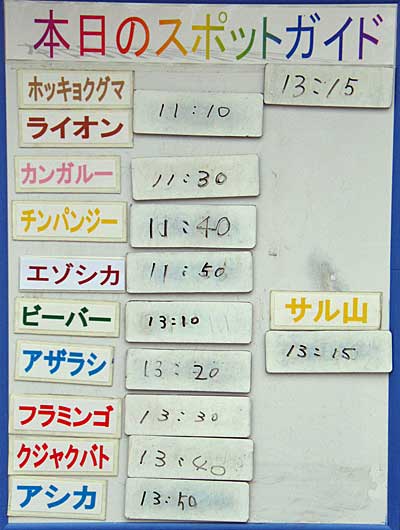 本日のスポットガイド
ホッキョクグマ 13:15
ライオン 11:10
カンガルー 11:30
チンパンジー 11:40
エゾシカ 11:50
ビーバー 13:10
サル山
13:15
アザラシ 13:20
フラミンゴ 13:30
クジャクバト 13:40
アシカ 13:50